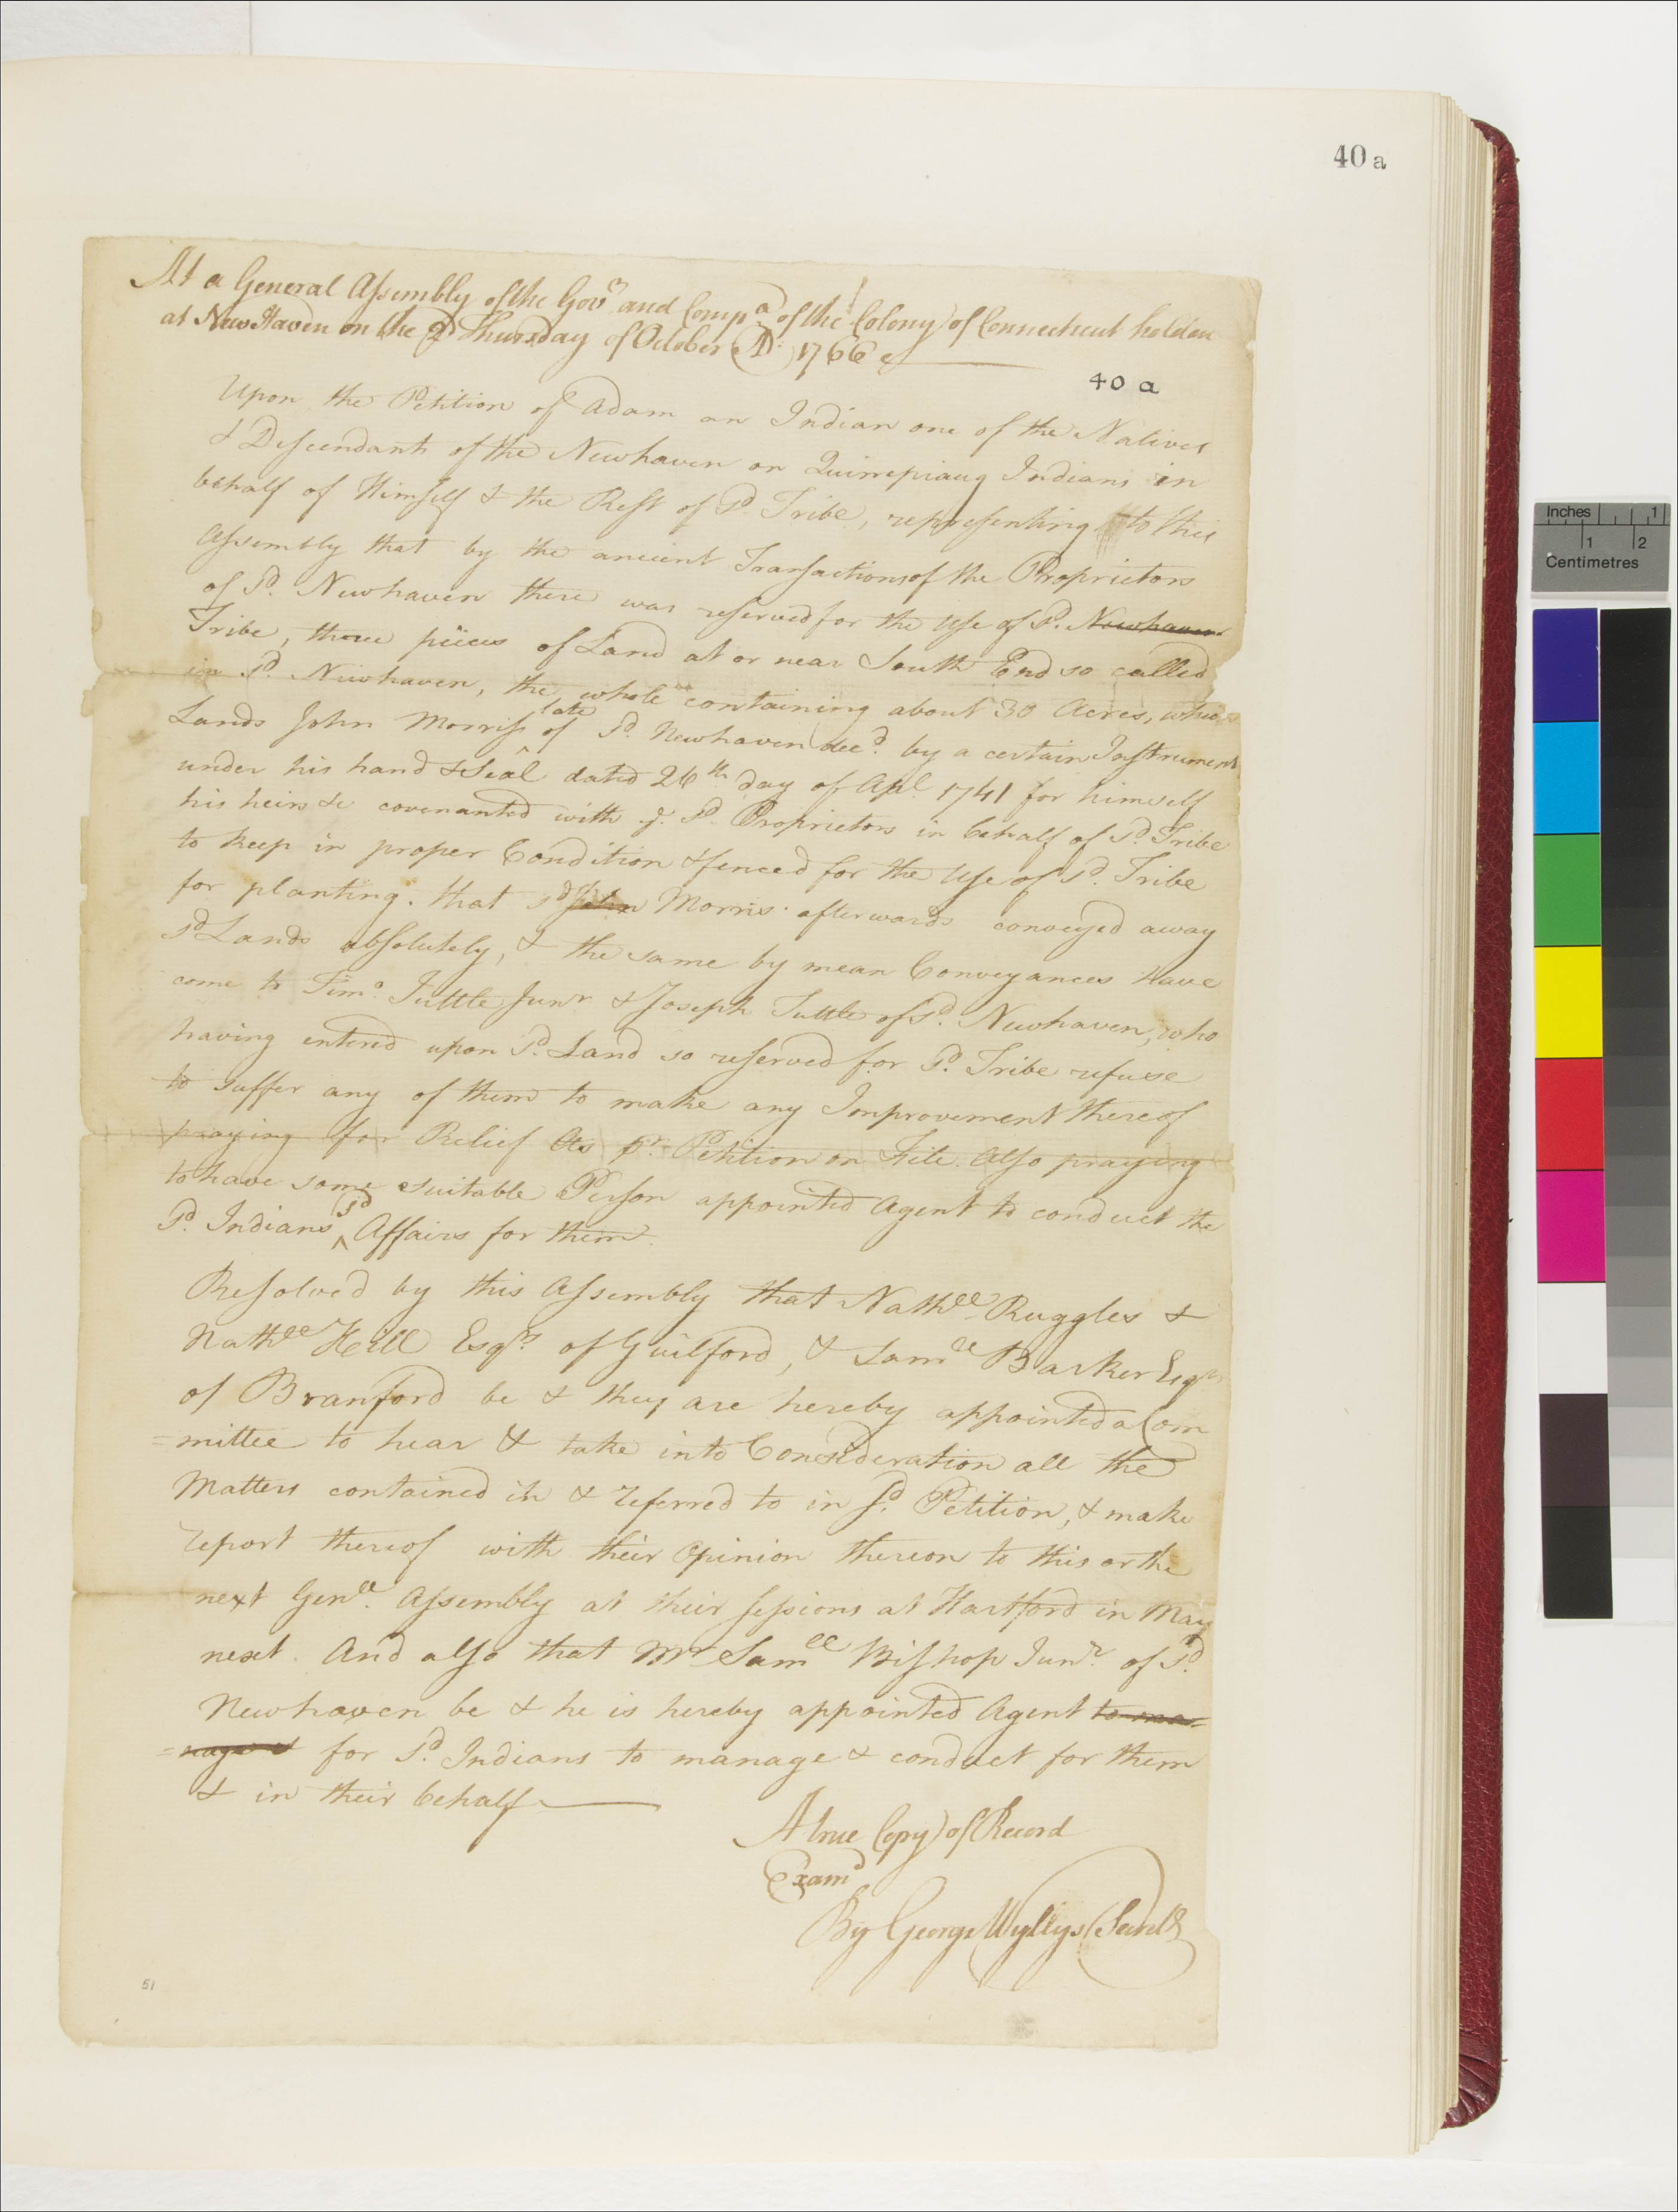 40 a
At a General Assembly of the Govr and Compa of the Colony of Connecticut holden
at New Haven on the 2d Thursday of October AD: 1766
40 a
Upon the Petition of Adam an Indian one of the Natives
& Descendants of the Newhaven or Quinnepiaug Indians in
behalf of Himself & the Rest of sd. Tribe, representing to this
Assembly that by the ancient Transactions of the Proprietors
of sd. Newhaven there was reserved for the Use of sd. Newhaven
Tribe, three pieces of Land at or near South End so called
in sd. Newhaven, the whole containing about 30 Acres, which
Lands John Morriss late of sd. Newhaven decd. by a certain Instrument
under his hand & Seal dated 26th day of Apl 1741 for himself
his heirs &c covenanted with ye. sd. Proprietors in behalf of sd. Tribe
to keep in proper Condition & fenced for the Use of sd. Tribe
for planting. that sd John Morris afterwards conveyed away
sd Lands absolutely, & the same by mean Conveyances have
come to Timo. Tuttle Junr & Joseph Tuttle of sd. Newhaven, who
having entered upon sd. Land so reserved for sd. Tribe refuse
to suffer any of them to make any Improvement thereof
praying for Relief as pr. Petition on File. Also praying
to have some suitable Person appointed Agent to conduct the
sd. Indians sd Affairs for them.
Resolved by this Assembly that Nathll Ruggles &
Nathll Hill Esqrs. of Guilford, & Samll Barker Esqr
of Branford be & they are hereby appointed a Com
=mittee to hear & take into Consideration all the
Matters contained in & referred to in sd. Petition, & make
report thereof with their Opinion thereon to this or the
next Genll. Assembly at their sessions at Hartford in May
next. And also that Mr Samll Bishop Junr. of sd.
Newhaven be & he is hereby appointed Agent to ma=
=nage & for sd. Indians to manage & conduct for them
& in their behalf
A true Copy of Record
Examd
By George Wyllys Secrety
51
Inches 1
1 2
Centimetres